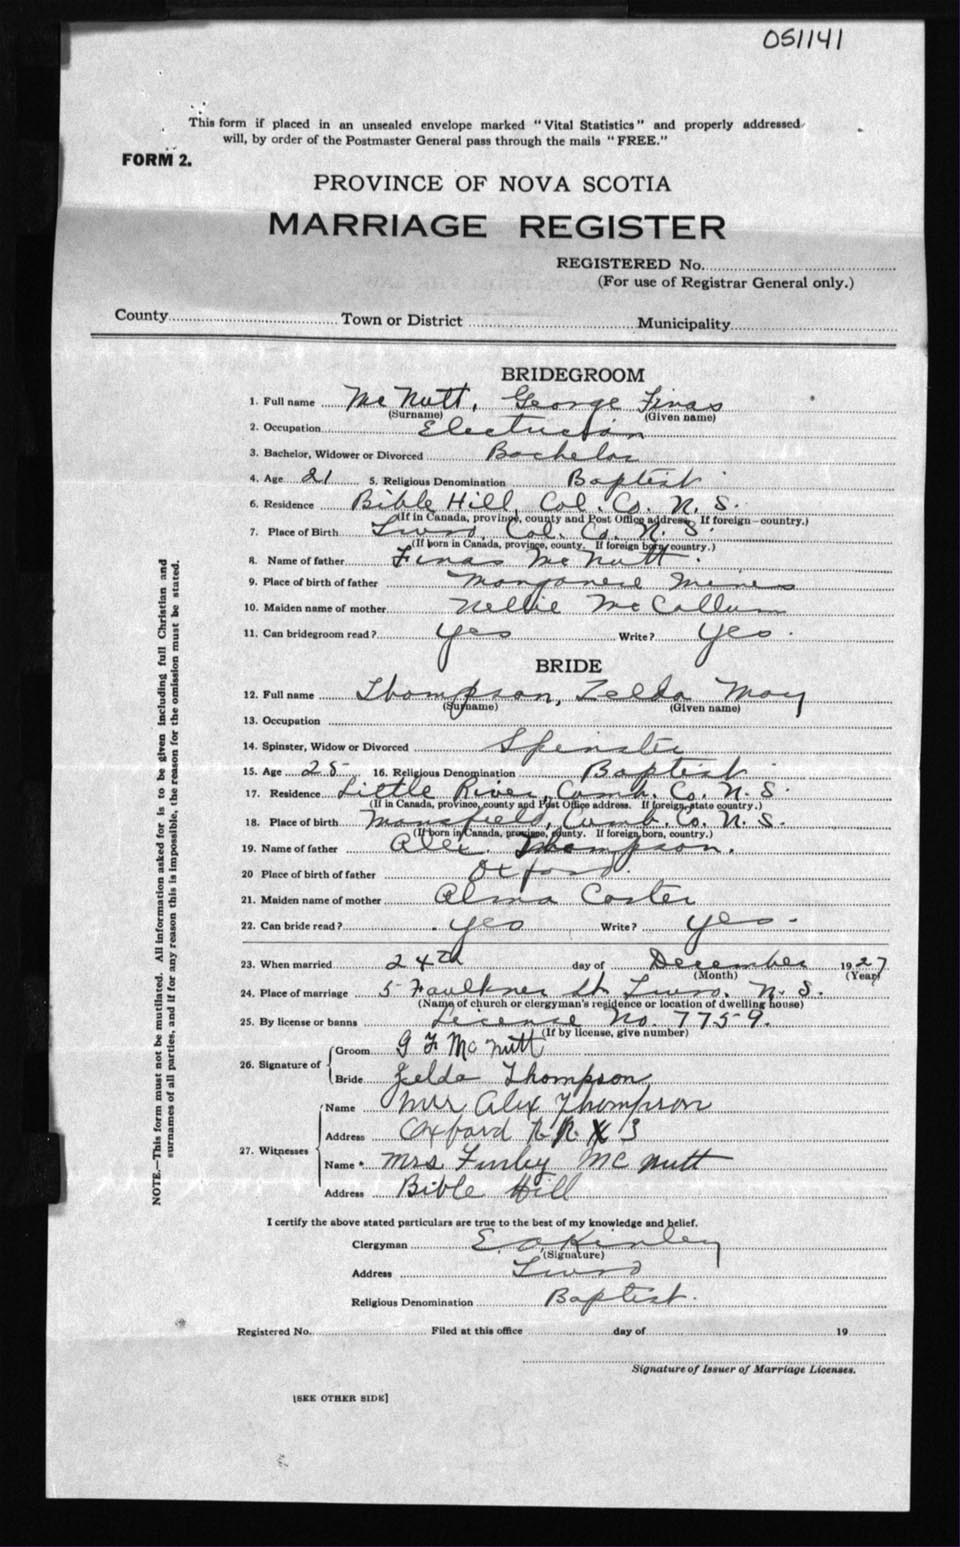 051141
This form if placed in an unsealed envelope marked "Vital Statistics" and properly addressed
will, by order of the Postmaster General pass through the mails "FREE."
FORM 2.
PROVINCE OF NOVA SCOTIA
MARRIAGE REGISTER
REGISTERED No.
(For use of Registrar General only.)
County Town or District Municipality
BRIDEGROOM
1. Full name Mc Nutt, George Finas
(Surname) (Given name)
2. Occupation Electrician
3. Bachelor, Widower or Divorced Bachelor
4. Age 21 5. Religious Denomination Baptist
6. Residence Bible Hill, Col. Co. N. S.
(If in Canada, province, county and Post Office address. If foreign—country.)
7. Place of Birth Truro, Col. Co. N. S.
(If born in Canada, province, county. If foreign born, country.)
8. Name of father Finas McNutt
9. Place of birth of father Manganese Mines
10. Maiden name of mother Nellie McCallum
11. Can bridegroom read? yes Write? yes.
BRIDE
12. Full name Thompson, Zelda May
(Surname) (Given name)
13. Occupation
14. Spinster, Widow or Divorced Spinster
15. Age 25 16. Religious Denomination Baptist
17. Residence Little River, Cumb. Co. N. S.
(If in Canada, province, county and Post Office address. If foreign, state country.)
18. Place of birth Mansfield, Cumb. Co. N. S.
(If born in Canada, province, county. If foreign, born, country.)
19. Name of father Alex. Thompson.
20 Place of birth of father Oxford.
21. Maiden name of mother Alma Coster
22. Can bride read? yes Write? yes.
23. When married 24th day of December 1927
(Month) (Year)
24. Place of marriage 5 Faulkner St. Truro, N. S.
(Name of church or clergyman's residence or location of dwelling house)
25. By license or banns License No. 7759.
(If by license, give number)
26. Signature of Groom G F Mc Nutt
Bride Zelda Thompson
27. Witnesses Name Mrs Alex Thompson
Address Oxford R. R. 3
Name Mrs Finley Mc Nutt
Address Bible Hill
I certify the above stated particulars are true to the best of my knowledge and belief.
Clergyman E. A Kinley
(Signature)
Address Truro
Religious Denomination Baptist.
Registered No. Filed at this office day of 19
Signature of Issuer of Marriage Licenses.
[SEE OTHER SIDE]
NOTE.—This form must not be mutilated. All information asked for is to be given including full Christian and
surnames of all parties, and if for any reason this is impossible, the reason for the omission must be stated.